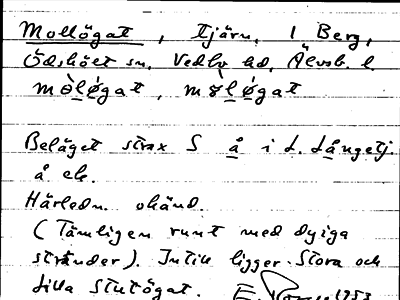 Mollögat, tjärn, i Berg,
Ödskölt sn. Vedbo hd, Älvsb. l.
Beläget strax S å i L. Långetj.
å ek.
Härledn. okänd.
(Tämligen runt med dyiga
stränder). Intill ligger Stora och
Lilla Stutögat. 1953